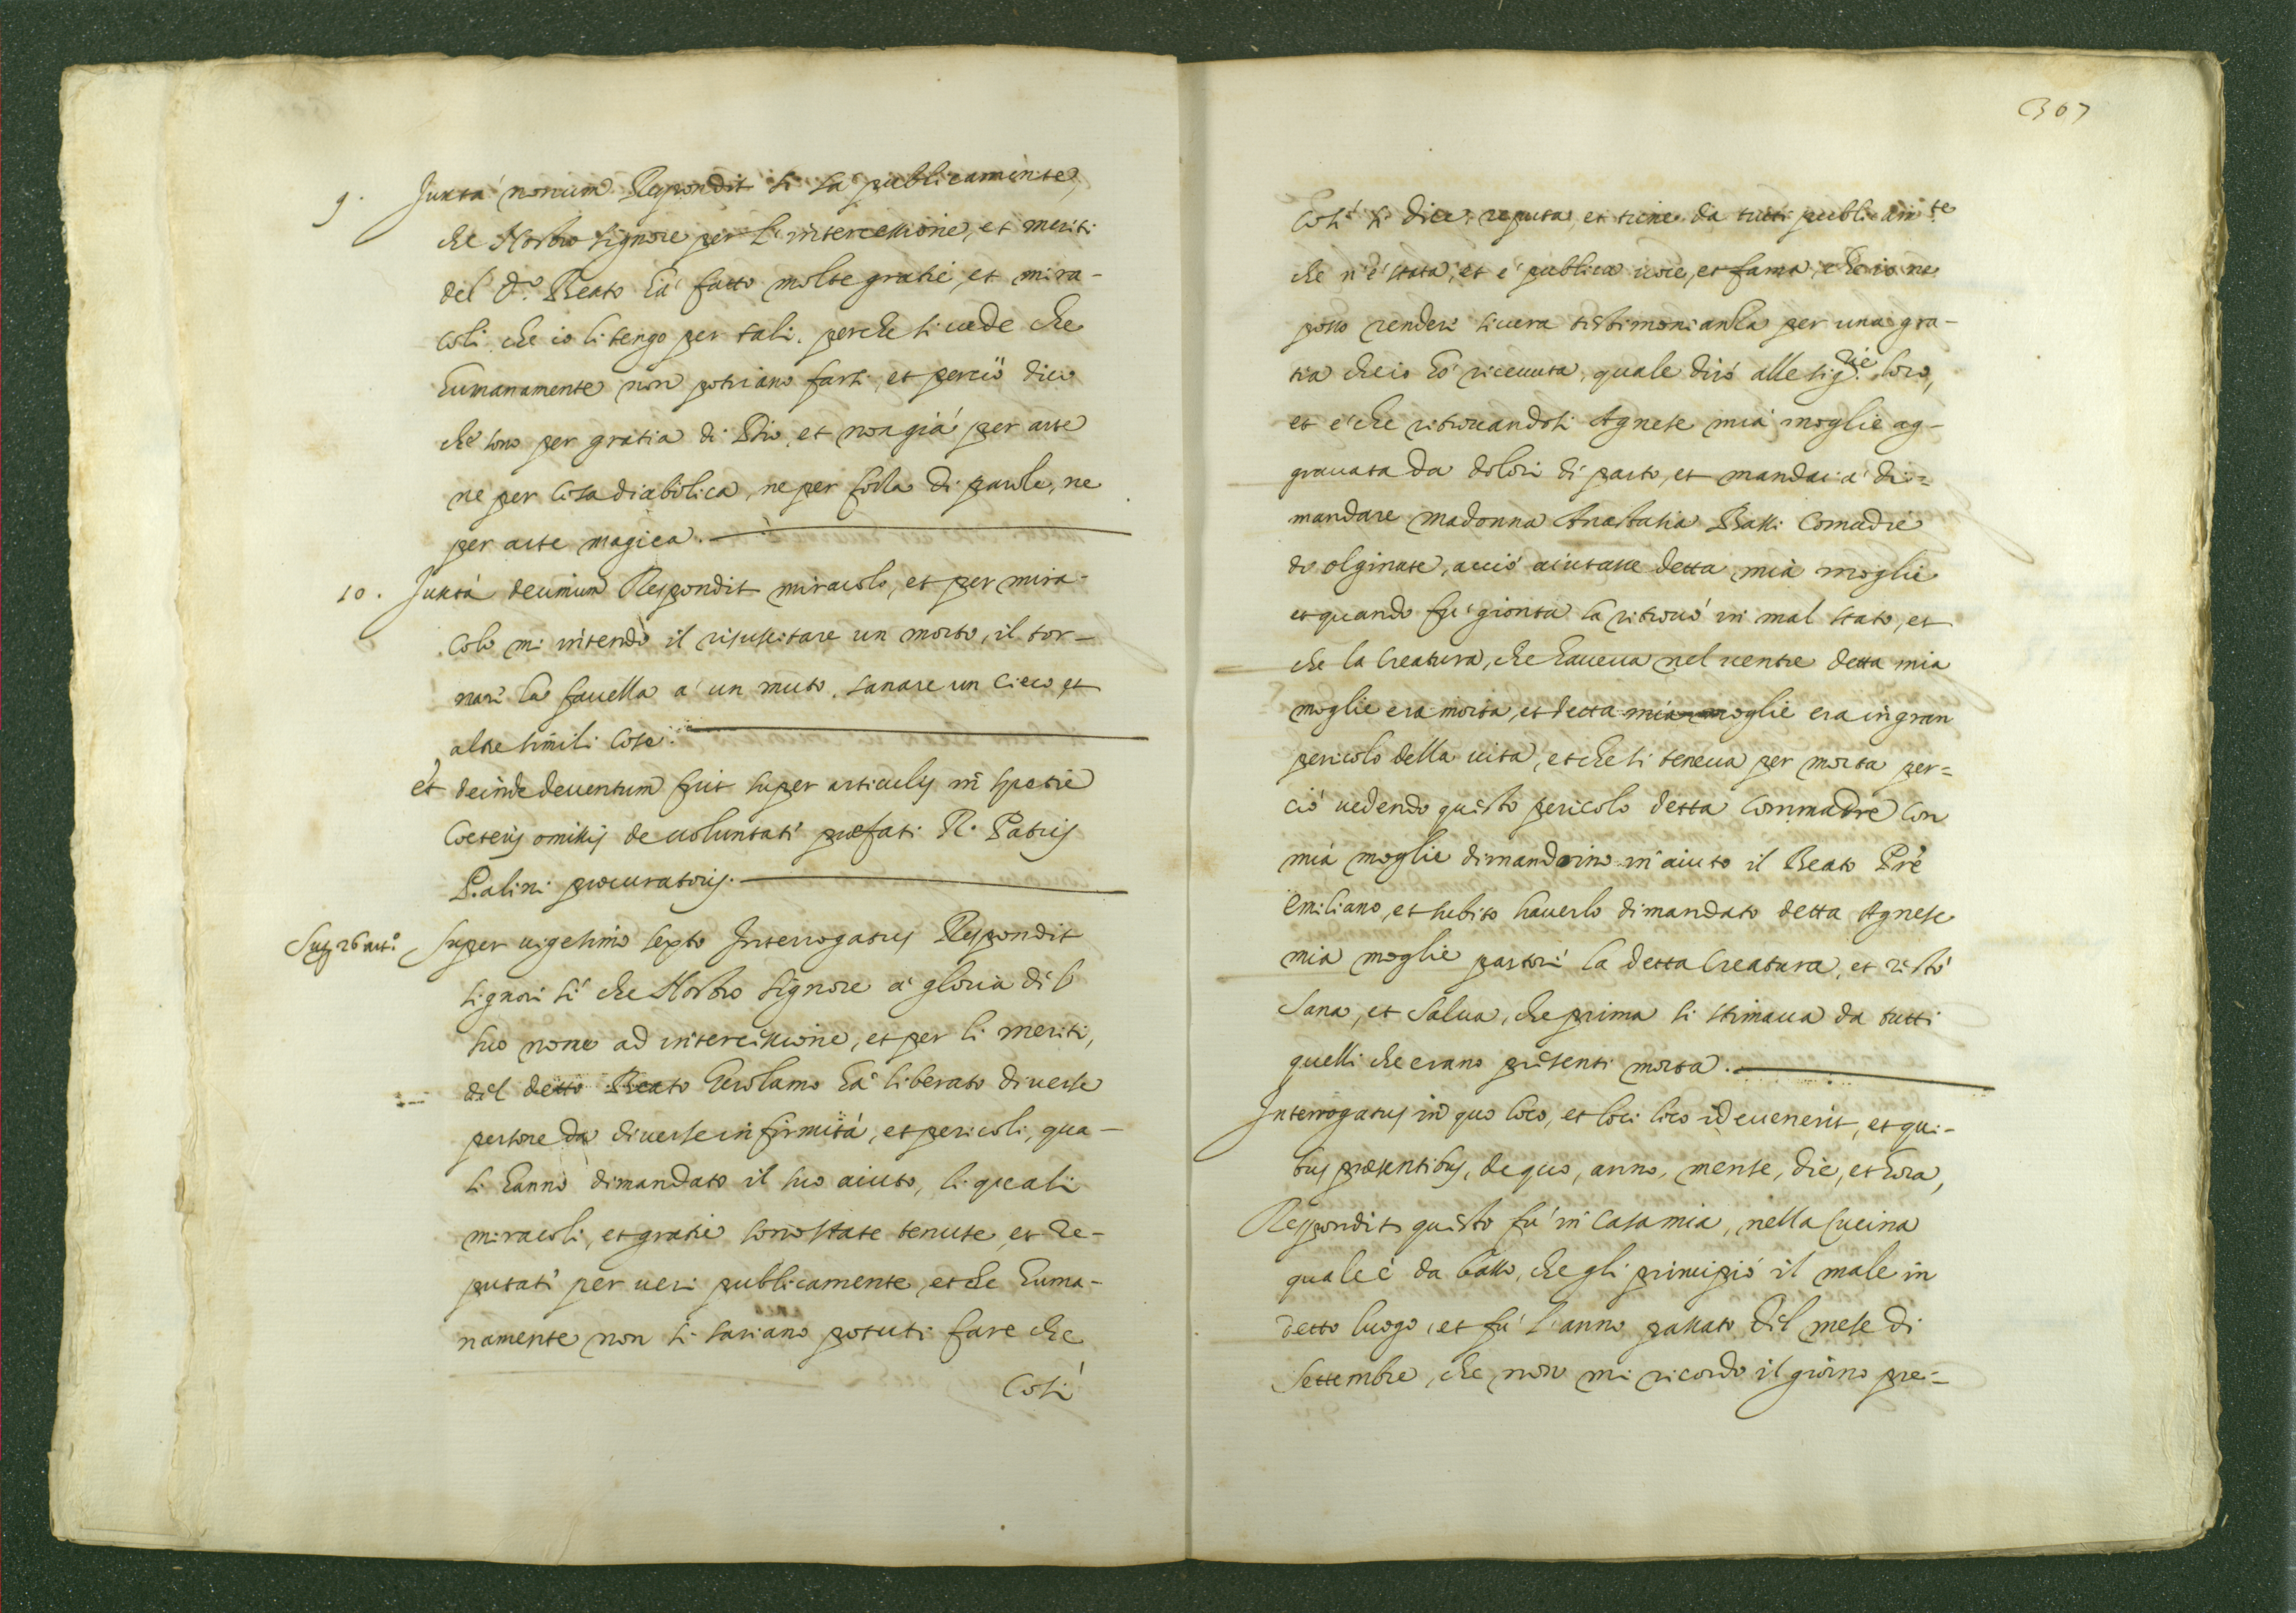 9. Juxta nonum Respondit si sà publicamente,
che Nostro Signore per l'intercessione, et meriti
del d.º Beato hà fatto molte gratie, et mira-
coli, che io li tengo per tali, perche si vede che
humanamente non potriano farsi, et perciò dico
che sono per gratia di Dio, et non già per arte
ne per cosa diabolica, ne per forza di parole, ne
per arte magica.
10. Juxta decimum Respondit miracolo, et per mira-
colo mi intendo il risuscitare un morto, il tor-
nare la favella a un muto, sanare un cieco, et
altre simili cose.
et deinde deventum fuit super articulis in specie
coeteris omissis de voluntate praefati R. Patris
Palini procuratoris.
Sup. 26 art.º Super vigesimo sexto Interrogatus Respondit
signori sì che Nostro Signore a gloria del
suo nome ad intercessione, et per li meriti,
del detto Beato Gerolamo hà liberato diverse
persone da diverse infirmità, et pericoli, qua-
li hanno dimandato il suo aiuto, li quali
miracoli, et gratie sono state tenute, et re-
putati per veri publicamente, et che huma-
namente non si sariano potuti fare che
Così
307
Così si dice, reputa, et tiene da tutti publicam.te
che n'è stata, et è publica voce, et fama, che io ne
posso rendere sicura testimonianza per una gra-
tia che io hò ricevuta, quale dirò alle sig.rie loro,
et è che ritrovandosi Agnese mia moglie ag-
gravata da dolori di parto, et mandai a di=
mandare madonna Anastasia Bassi Comadre
do olginate, acciò aiutasse detta mia moglie
et quando fu gionta la ritrovò in mal stato, et
che la Creatura, che haveva nel ventre detta mia
moglie era morta, et detta mia moglie era in gran
pericolo della vita, et che si teneva per morta per=
ciò vedendo questo pericolo detta Commadre con
mia moglie dimandorino in aiuto il Beato Pre
Emiliano, et subito haverlo dimandato detta Agnese
mia moglie partorì la detta Creatura, et restò
sana, et salva, che prima si stimava da tutti
quelli che erano presenti morta.
Interrogatus in quo loco, et loci loco id evenerit, et qui-
bus praesentibus, de quo, anno, mense, die, et hora,
Respondit questo fù in Casa mia, nella Cucina
quale è da basso, che gli principiò il male in
detto luogo, et fù l'anno passato del mese di
Settembre, che non mi ricordo il giorno pre=